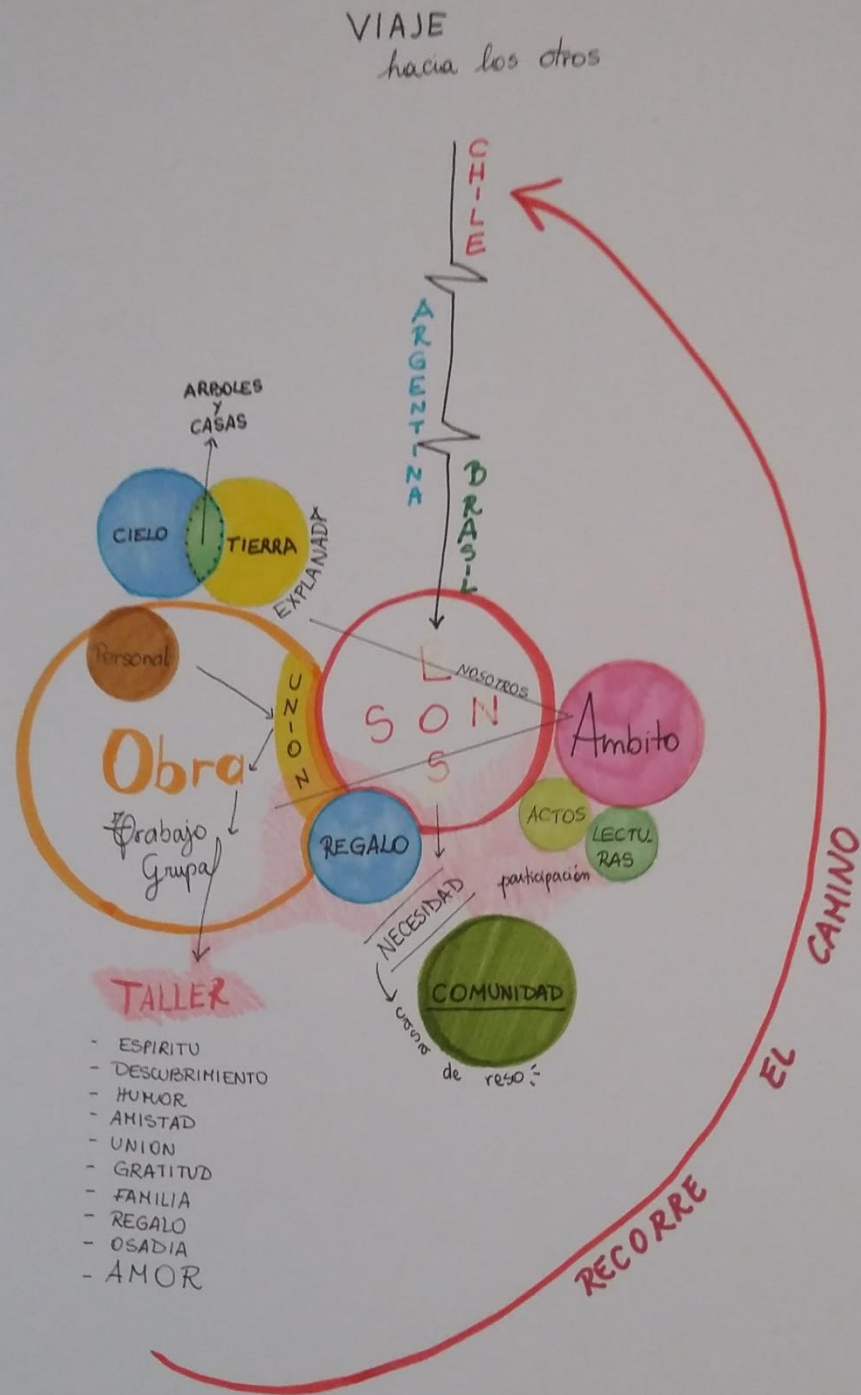 VIAJE
hacia los otros
CHILE
ARGENTINA
BRASIL
ARBOLES
Y
CASAS
CIELO
TIERRA
EXPLANADA
Personal
UNION
Obra
trabajo
Grupal
L
NOSOTROS
S O N
S
Ambito
ACTOS
LECTU-
RAS
participación
REGALO
NECESIDAD
COMUNIDAD
casa
de reso
TALLER
- ESPIRITU
- DESCUBRIMIENTO
- HUMOR
- AMISTAD
- UNION
- GRATITUD
- FAMILIA
- REGALO
- OSADIA
- AMOR
RECORRE EL CAMINO